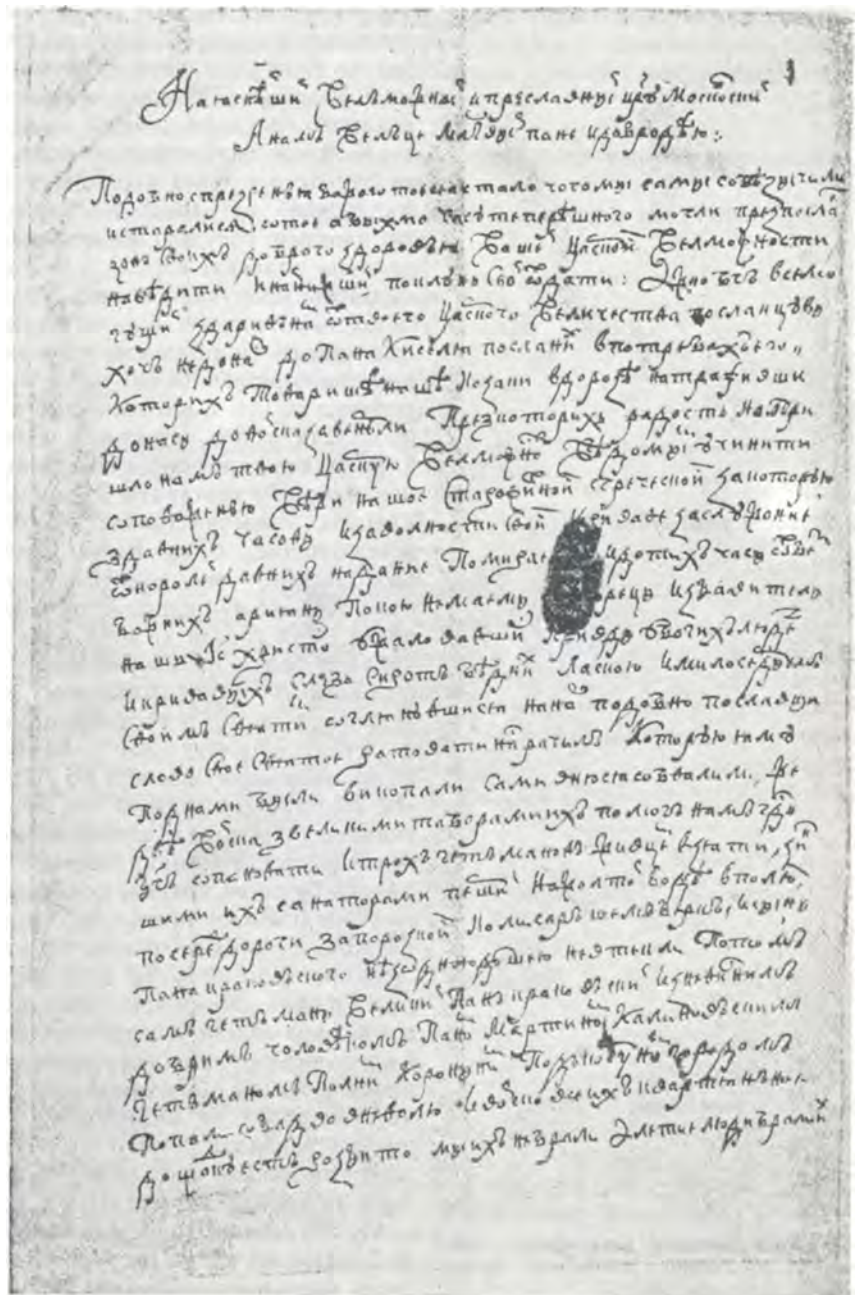 Наяснѣйший Велможный и преславный цру Московский
А намъ Велце Млстивый пане и добродѣю:
Подобно с презрѣня Бжого тое ся стало чого мы сами собѣ зычили
и старалися о тое абысмо часу теперешнего могли през посла
нцов своихъ доброго здоровя Вашей Цаской Велможности
навѣдити и найнижший поклон свой ѿдати: Ажно Бгъ всемо
гущий здаривъ нам ѿ твоего Цаского Величества посланцувъ
хочъ не до нас до Пана Киселя посланих в потребахъ его
Которихъ Товариши наши Козаки в дорозѣ натрафивши
до нас до войска завернули През которихъ радостно при
шло намъ твою Цаскую Велможност Вѣдомым учинити
оповоженю Вѣри нашое Старожитной Греческой за которую
з давнихъ часовъ и за волности свои криваве заслужоние
ѿ королей давних надание Помираем и до тихъ часъ ѿ без
божнихъ ариянъ Покою не маемъ ворецъ избавитель
нашъ Іс Христосъ ужаловавшис кривдъ убогихъ людей
и кривавыхъ слезъ сиротъ бѣднихъ Ласкою и милосердемъ
своимъ Святим оглянувшися на насъ подобно пославши
слово Свое Святое ратовати насъ рачилъ Которую яму
Под нами были викопали сами в ню ся обвалили, же
двѣ Войска з великими таборами ихъ помогъ намъ Гдь
Бгъ опановати и трохъ гетмановъ живцемъ взяти, з ын
шими ихъ санаторами перший На Жолтой Водѣ в полю
посеред дороги Запорозкой Комисаръ Шемъберкъ и сынъ
Пана краковского нѣ з одною душею не втекли Потомъ
самъ Гетманъ Великий Панъ краковский из невиннимъ
добримъ чоловѣкомъ Паномъ Мартиномъ Калиновским
Гетманомъ Полним Коронним Под городомъ
Попали обадва в неволю и войско все ихъ квартяное
до щадку естъ розбито мы ихъ не брали але тие люди брали их